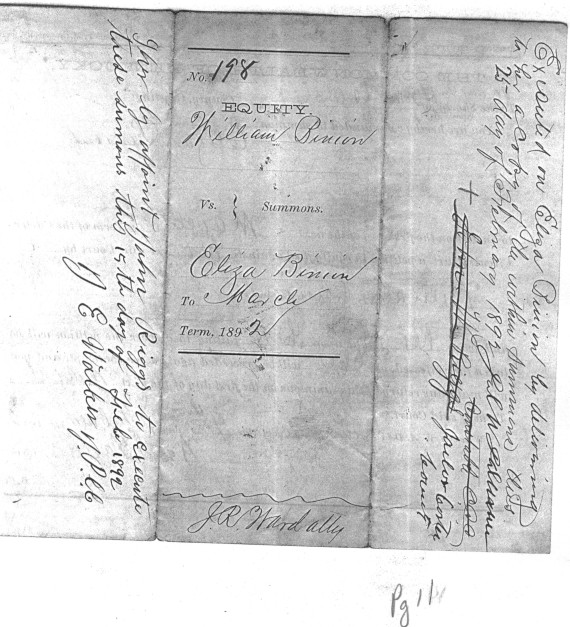 I her by appoint John Riggs to execute
these sumons this 15th day of Feb 1892
J E Walker J.P.C.C
No. 198
EQUITY.
William Binion
Vs. } Summons.
Eliza Binion
To March
Term. 1892
J. R. Ward atty
Executed on Eliza Binion by delivering
to her a copy of the within summons this
25 day of February 1892
Carter
court
Pg 1